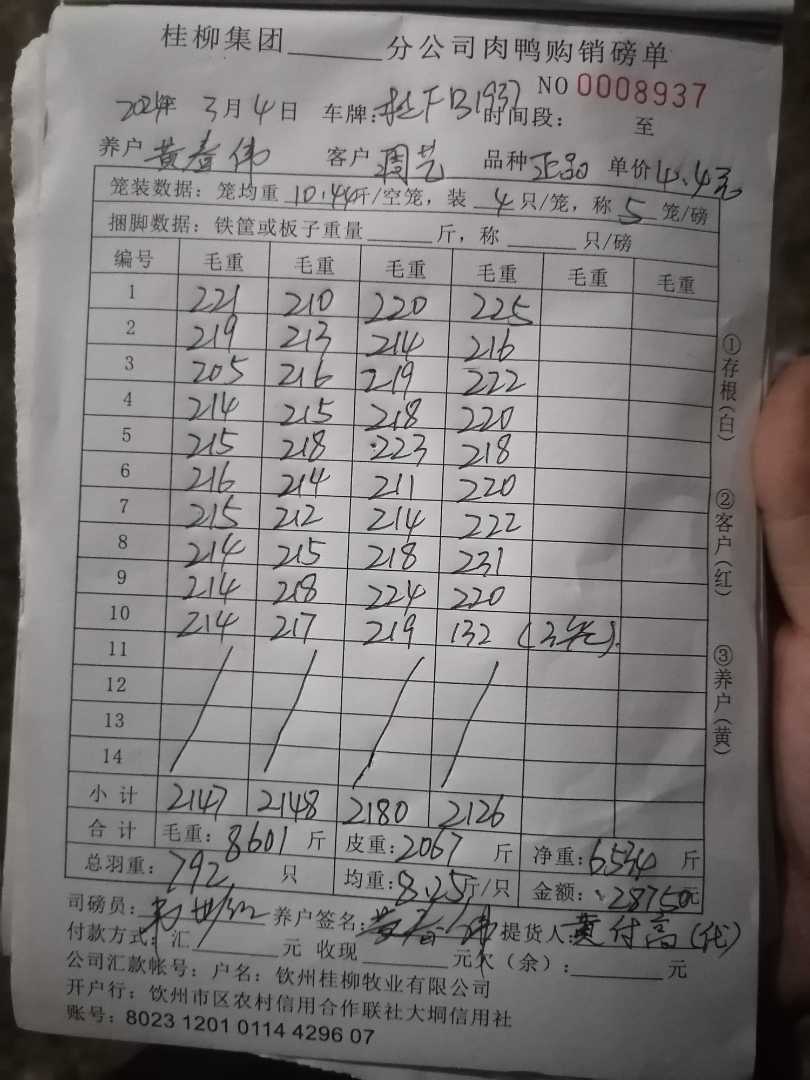 桂柳集团______分公司肉鸭购销磅单
NO 0008937
2024年 3月4日 车牌:桂FB1937 时间段: 至
养户 黄春伟 客户 周艺 品种 正品 单价 4.4元
笼装数据：笼均重 10.44斤/空笼，装 4 只/笼，称 5 笼/磅
捆脚数据：铁筐或板子重量______斤，称______只/磅
编号 毛重 毛重 毛重 毛重 毛重 毛重
1 221 210 220 225
2 219 213 214 216
3 205 216 219 222
4 214 215 218 220
5 215 218 223 218
6 216 214 211 220
7 215 212 214 222
8 214 215 218 231
9 214 218 224 220
10 214 217 219 132 (3笼).
11
12
13
14
小计 2147 2148 2180 2126
合计 毛重：8601 斤 皮重：2067 斤 净重：6534 斤
总羽重：792 只 均重：8.25斤/只 金额：28750元
司磅员： 养户签名： 提货人：黄付高(代)
付款方式：汇______元 收现______元欠（余）：______元
公司汇款帐号：户名：钦州桂柳牧业有限公司
开户行：钦州市区农村信用合作联社大垌信用社
账号：8023 1201 0114 4296 07
①存根(白)
②客户(红)
③养户(黄)